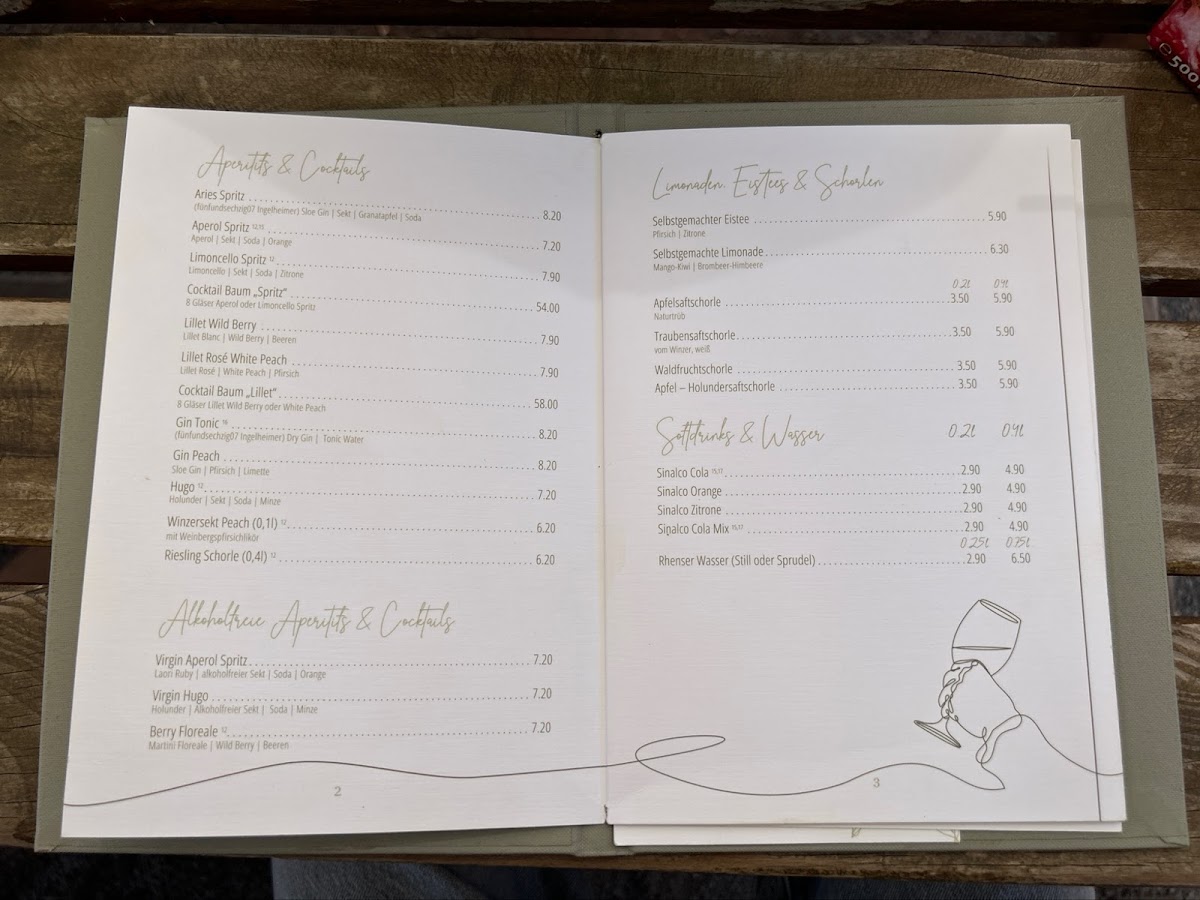 Aperitifs & Cocktails
Aries Spritz 8.20
(fünfundsechzig07 Ingelheimer) Sloe Gin | Sekt | Granatapfel | Soda
Aperol Spritz 12,15 7.20
Aperol | Sekt | Soda | Orange
Limoncello Spritz 12 7.90
Limoncello | Sekt | Soda | Zitrone
Cocktail Baum „Spritz“ 54.00
8 Gläser Aperol oder Limoncello Spritz
Lillet Wild Berry 7.90
Lillet Blanc | Wild Berry | Beeren
Lillet Rosé White Peach 7.90
Lillet Rosé | White Peach | Pfirsich
Cocktail Baum „Lillet“ 58.00
8 Gläser Lillet Wild Berry oder White Peach
Gin Tonic 16 8.20
(fünfundsechzig07 Ingelheimer) Dry Gin | Tonic Water
Gin Peach 8.20
Sloe Gin | Pfirsich | Limette
Hugo 12 7.20
Holunder | Sekt | Soda | Minze
Winzersekt Peach (0,1l) 12 6.20
mit Weinbergspfirsichlikör
Riesling Schorle (0,4l) 12 6.20
Alkoholfreie Aperitifs & Cocktails
Virgin Aperol Spritz 7.20
Laori Ruby | alkoholfreier Sekt | Soda | Orange
Virgin Hugo 7.20
Holunder | Alkoholfreier Sekt | Soda | Minze
Berry Floreale 12 7.20
Martini Floreale | Wild Berry | Beeren
2
Limonaden, Eistees & Schorlen
Selbstgemachter Eistee 5.90
Pfirsich | Zitrone
Selbstgemachte Limonade 6.30
Mango-Kiwi | Brombeer-Himbeere
0.2l 0.4l
Apfelsaftschorle 3.50 5.90
Naturtrüb
Traubensaftschorle 3.50 5.90
vom Winzer, weiß
Waldfruchtschorle 3.50 5.90
Apfel – Holundersaftschorle 3.50 5.90
Softdrinks & Wasser 0.2l 0.4l
Sinalco Cola 15,17 2.90 4.90
Sinalco Orange 2.90 4.90
Sinalco Zitrone 2.90 4.90
Sinalco Cola Mix 15,17 2.90 4.90
0.25l 0.75l
Rhenser Wasser (Still oder Sprudel) 2.90 6.50
3